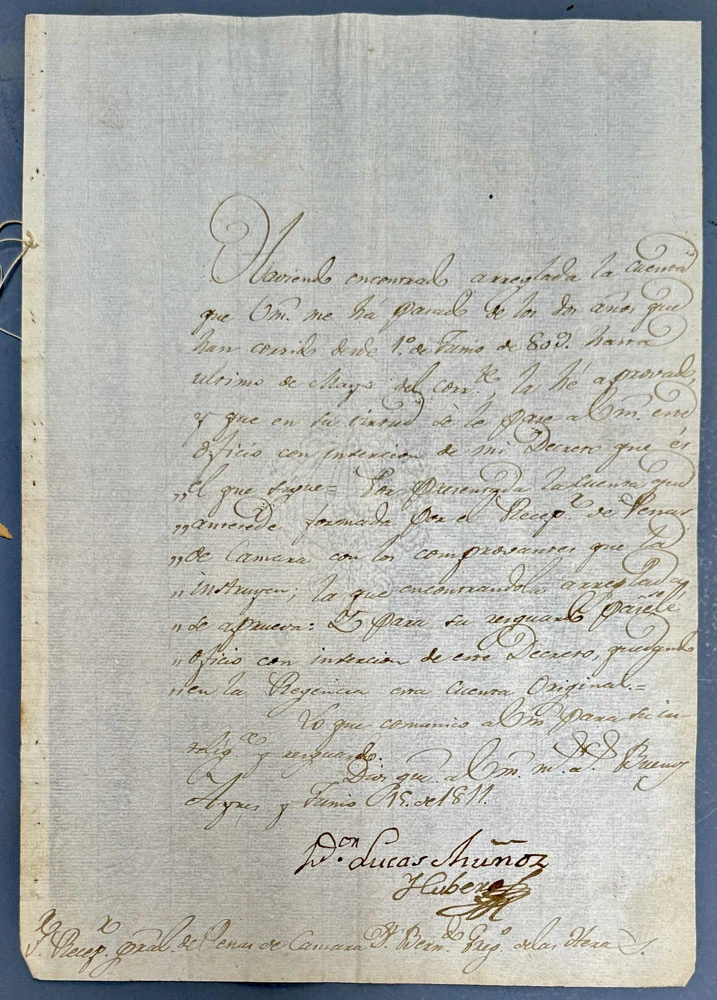 Haviendo encontrado arreglada la cuenta
que Vm. me há pasado de los dos años que
han corrido desde 1.º de Junio de 809. hasta
ultimo de Mayo del corr.te, la hé aprovado,
y que en su virtud sè le pase a Vm. este
oficio con insercion de mi Decreto que és
„el que sigue= Por presentada la cuenta que
„antecede formada por el Recep.r de Penas
„de Camara con los comprovantes que la
„instruyen; la que encontrandola arreglada
„se aprueva: Y para su resguardo pasesele
„oficio con insercion de este Decreto, quedando
„en la Regencia esta cuenta Original.=
Lo que comunico a Vm. para su in-
telig.a y resguardo.
Dios gue. a Vm. m.s a.s Buenos
Ayres y Junio 15. de 1811.
D.on Lucas Muñoz
Y Cubero
S.r Recep.r gral. de Penas de Camara D. Bern.do Greg.o de las Heras.